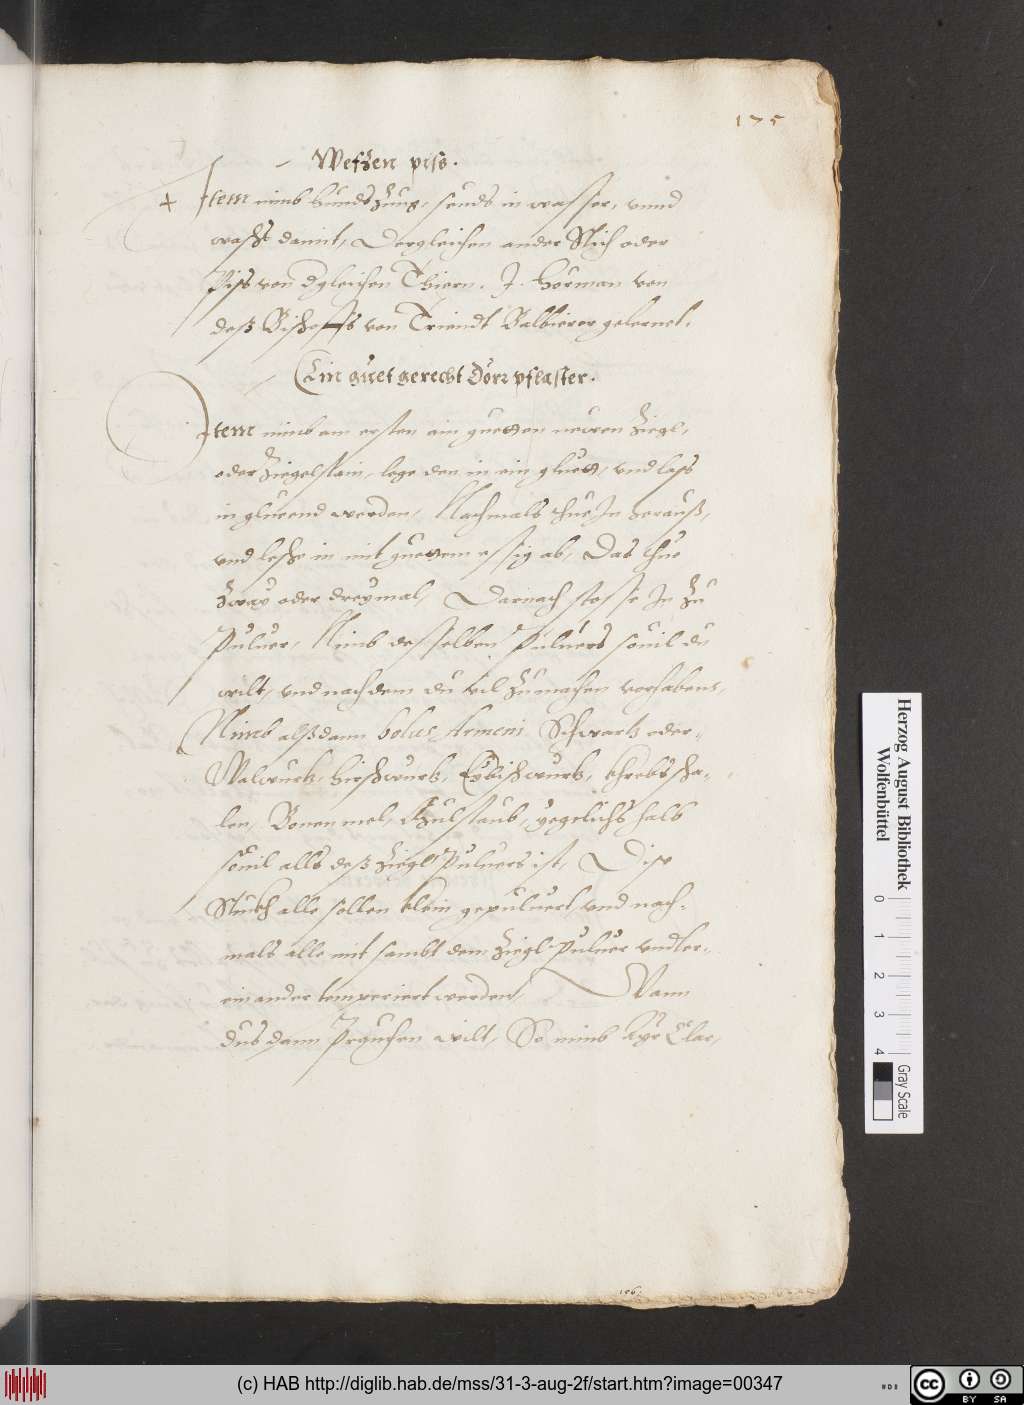 175
Wefzen piss.
+ Item nimb hundszung, seuds in wasser, vnnd
waschs damit, Dergleichen ander Stich oder
Piss von dgleichen Thiern. J. Hörman von
deß Bischoffs von Triendt Balbierer gelernet.
Ein guet gerecht Dörr pflaster.
Item nimb am ersten ain guetten newen Ziegl,
oder Ziegelstain, lege den in ein gluett, vnd lass
in glueend werden, Nachmals thue In herauß,
vnd lesche in mit guettem essig ab, Das thue
zway oder dreymal, Darnach stosse In zu
Puluer, Nimb desselben Puluers souil du
wilt, vnd nach dem du vil zumachen vorhabens,
Nimb alßdann bolus Armeni Schwartz oder
Walwurtz, hirschwurtz, Eybischwurtz, khrebs scha-
len, Bonen mel, Mhülstaub, yegelichs halb
souil alls deß Ziegl Puluers ist, Dise
Stuckh alle sollen klein gepuluert, vnd nach-
mals alle mit sambt dem Ziegl Puluer vndter-
einander temperiert werden, Wann
dus dann Prauchen wilt, So nimb Ayr Clar,
106
Herzog August Bibliothek
Wolfenbüttel
0 1 2 3 4
Gray Scale
(c) HAB http://diglib.hab.de/mss/31-3-aug-2f/start.htm?image=00347
CC BY SA